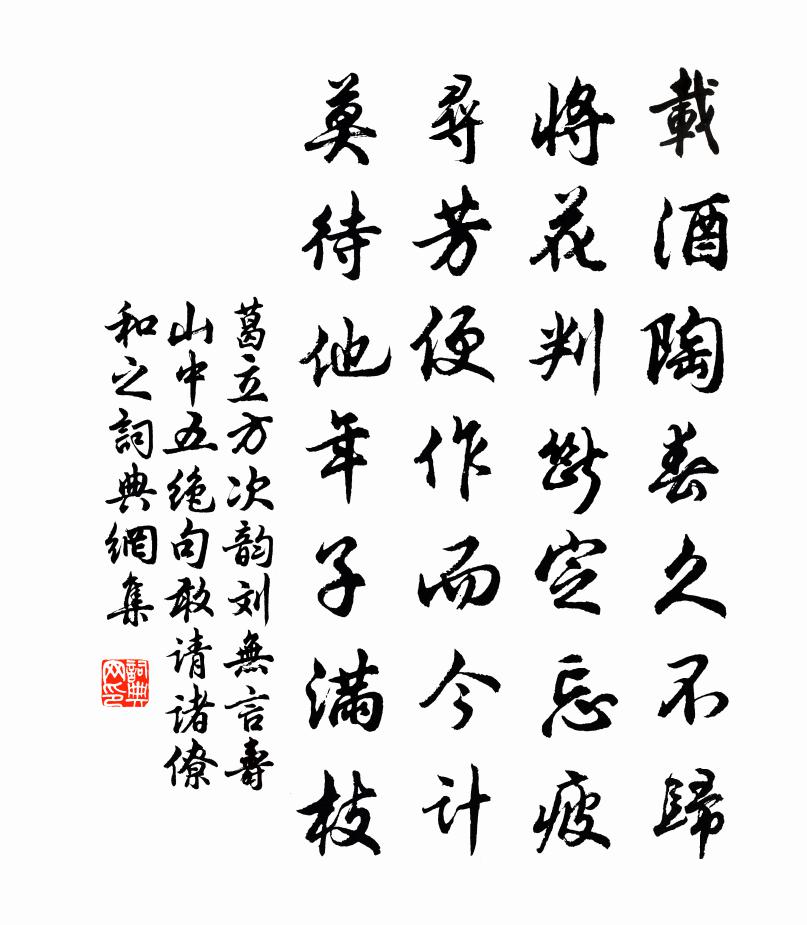 載酒陶春久不歸
將花判斷定忘疲
尋芳便作而今計
莫待他年子滿枝
葛立方次韵刘無言壽
山中五绝句敢请诸僚
和之詞典網集
詞典网印